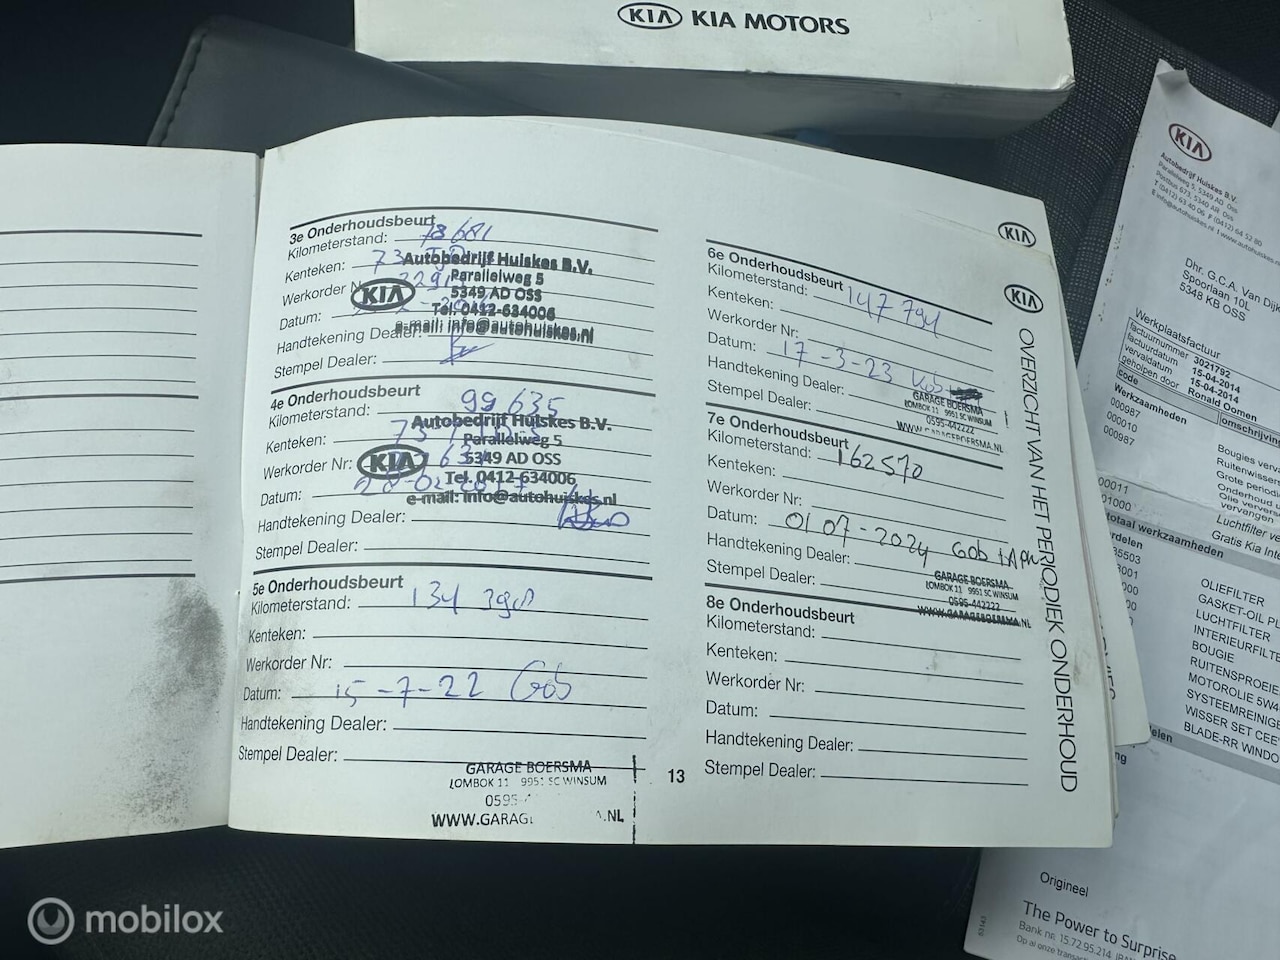 KIA KIA MOTORS
3e Onderhoudsbeurt
Kilometerstand: 78681
Kenteken: 73
Werkorder N
Datum:
Handtekening Dealer:
Stempel Dealer:
Autobedrijf Huiskes B.V.
Parallelweg 5
5349 AD OSS
Tel. 0412-634006
e-mail: info@autohuiskes.nl
KIA
4e Onderhoudsbeurt
Kilometerstand: 99635
Kenteken: 73
Werkorder Nr:
Datum:
Handtekening Dealer:
Stempel Dealer:
Autobedrijf Huiskes B.V.
Parallelweg 5
5349 AD OSS
Tel. 0412-634006
e-mail: info@autohuiskes.nl
KIA
5e Onderhoudsbeurt
Kilometerstand:
Kenteken:
Werkorder Nr:
Datum: 15-7-22 Gob
Handtekening Dealer:
Stempel Dealer:
GARAGE BOERSMA
LOMBOK 11 9951 SC WINSUM
0595-
WWW.GARAG .NL
13
6e Onderhoudsbeurt
Kilometerstand: 147794
Kenteken:
Werkorder Nr:
Datum: 17-3-23 Gob
Handtekening Dealer:
Stempel Dealer:
GARAGE BOERSMA
LOMBOK 11 9951 SC WINSUM
0595-442222
WWW.GARAGEBOERSMA.NL
7e Onderhoudsbeurt
Kilometerstand: 162570
Kenteken:
Werkorder Nr:
Datum: 01 07-2024 Gob
Handtekening Dealer:
Stempel Dealer:
GARAGE BOERSMA
LOMBOK 11 9951 SC WINSUM
0595-442222
WWW.GARAGEBOERSMA.NL
8e Onderhoudsbeurt
Kilometerstand:
Kenteken:
Werkorder Nr:
Datum:
Handtekening Dealer:
Stempel Dealer:
KIA
KIA
OVERZICHT VAN HET PERIODIEK ONDERHOUD
KIA
Autobedrijf Huiskes B.V.
Parallelweg 5, 5349 AD Oss
Postbus 673, 5340 AR Oss
T (0412) 63 40 06 F (0412) 64 52 80
E info@autohuiskes.nl I www.autohuiskes.nl
Dhr. G.C.A. Van Dijk
Spoorlaan 10L
5348 KB OSS
Werkplaatsfactuur
factuurnummer 3021792
factuurdatum 15-04-2014
vervaldatum 15-04-2014
geholpen door Ronald Oomen
code omschrijving
Werkzaamheden
000987
000010
000987
Bougies verva
Ruitenwisser
Grote periodi
Onderhoud
Olie ververse
vervangen
00011 Luchtfilter ve
01000 Gratis Kia Inte
otaal werkzaamheden
rdelen
35503 OLIEFILTER
GASKET-OIL PL
LUCHTFILTER
INTERIEURFILTE
BOUGIE
RUITENSPROEIE
MOTOROLIE 5W4
SYSTEEMREINIGE
WISSER SET CEE
BLADE-RR WINDO
Origineel
The Power to Surprise
Bank nr. 15.72.95.214
mobilox